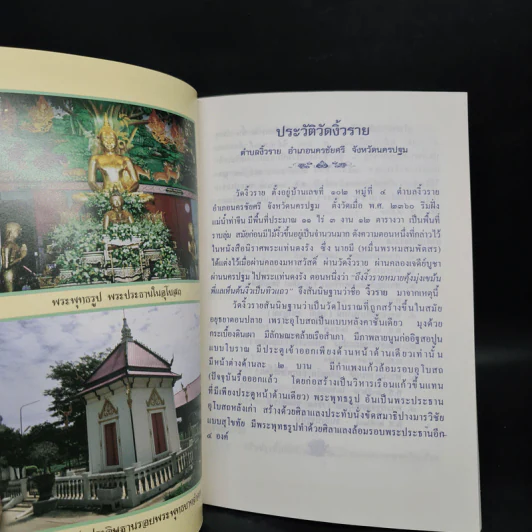 พระพุทธรูป พระประธานในอุโบสถ
ประวัติวัดงิ้วราย
ตำบลงิ้วราย อำเภอนครชัยศรี จังหวัดนครปฐม
วัดงิ้วราย ตั้งอยู่บ้านเลขที่ ๑๐๒ หมู่ที่ ๔ ตำบลงิ้วราย
อำเภอนครชัยศรี จังหวัดนครปฐม ตั้งวัดเมื่อ พ.ศ. ๒๓๖๐ ริมฝั่ง
แม่น้ำท่าจีน มีพื้นที่ประมาณ ๑๑ ไร่ ๓ งาน ๑๒ ตารางวา เป็นพื้นที่
ราบลุ่ม สมัยก่อนมีไม้งิ้วขึ้นอยู่เป็นจำนวนมาก ดังความตอนหนึ่งที่กล่าวไว้
ในหนังสือนิราศพระแท่นดงรัง ซึ่ง นายมี (หมื่นพรหมสมพัตสร)
ได้แต่งไว้เมื่อผ่านคลองมหาสวัสดิ์ ผ่านวัดงิ้วราย ผ่านคลองเจดีย์บูชา
ผ่านนครปฐม ไปพระแท่นดงรัง ตอนหนึ่งว่า "ถึงงิ้วรายหมายคุ้งมุ่งเขม้น
พี่แลเห็นต้นงิ้วเป็นทิวแถว" จึงสันนิษฐานว่าชื่อ งิ้วราย มาจากเหตุนี้
วัดงิ้วรายสันนิษฐานว่าเป็นวัดโบราณที่ถูกสร้างขึ้นในสมัย
อยุธยาตอนปลาย เพราะอุโบสถเป็นแบบหลังคาชั้นเดียว มุงด้วย
กระเบื้องดินเผา มีลักษณะคล้ายเรือสำเภา มีภาพลายนูนก่ออิฐสอปูน
แบบโบราณ มีประตูเข้าออกเพียงด้านหน้าด้านเดียวเท่านั้น
มีหน้าต่างด้านละ ๒ บาน มีกำแพงแก้วล้อมรอบอุโบสถ
(ปัจจุบันรื้อออกแล้ว โดยก่อสร้างเป็นวิหารเรือนแก้วขึ้นแทน
ที่มีเพียงประตูหน้าด้านเดียว) พระพุทธรูป อันเป็นพระประธาน
อุโบสถหลังเก่า สร้างด้วยศิลาแลงประทับนั่งขัดสมาธิปางมารวิชัย
แบบสุโขทัย มีพระพุทธรูปทำด้วยศิลาแลงล้อมรอบพระประธานอีก
๔ องค์